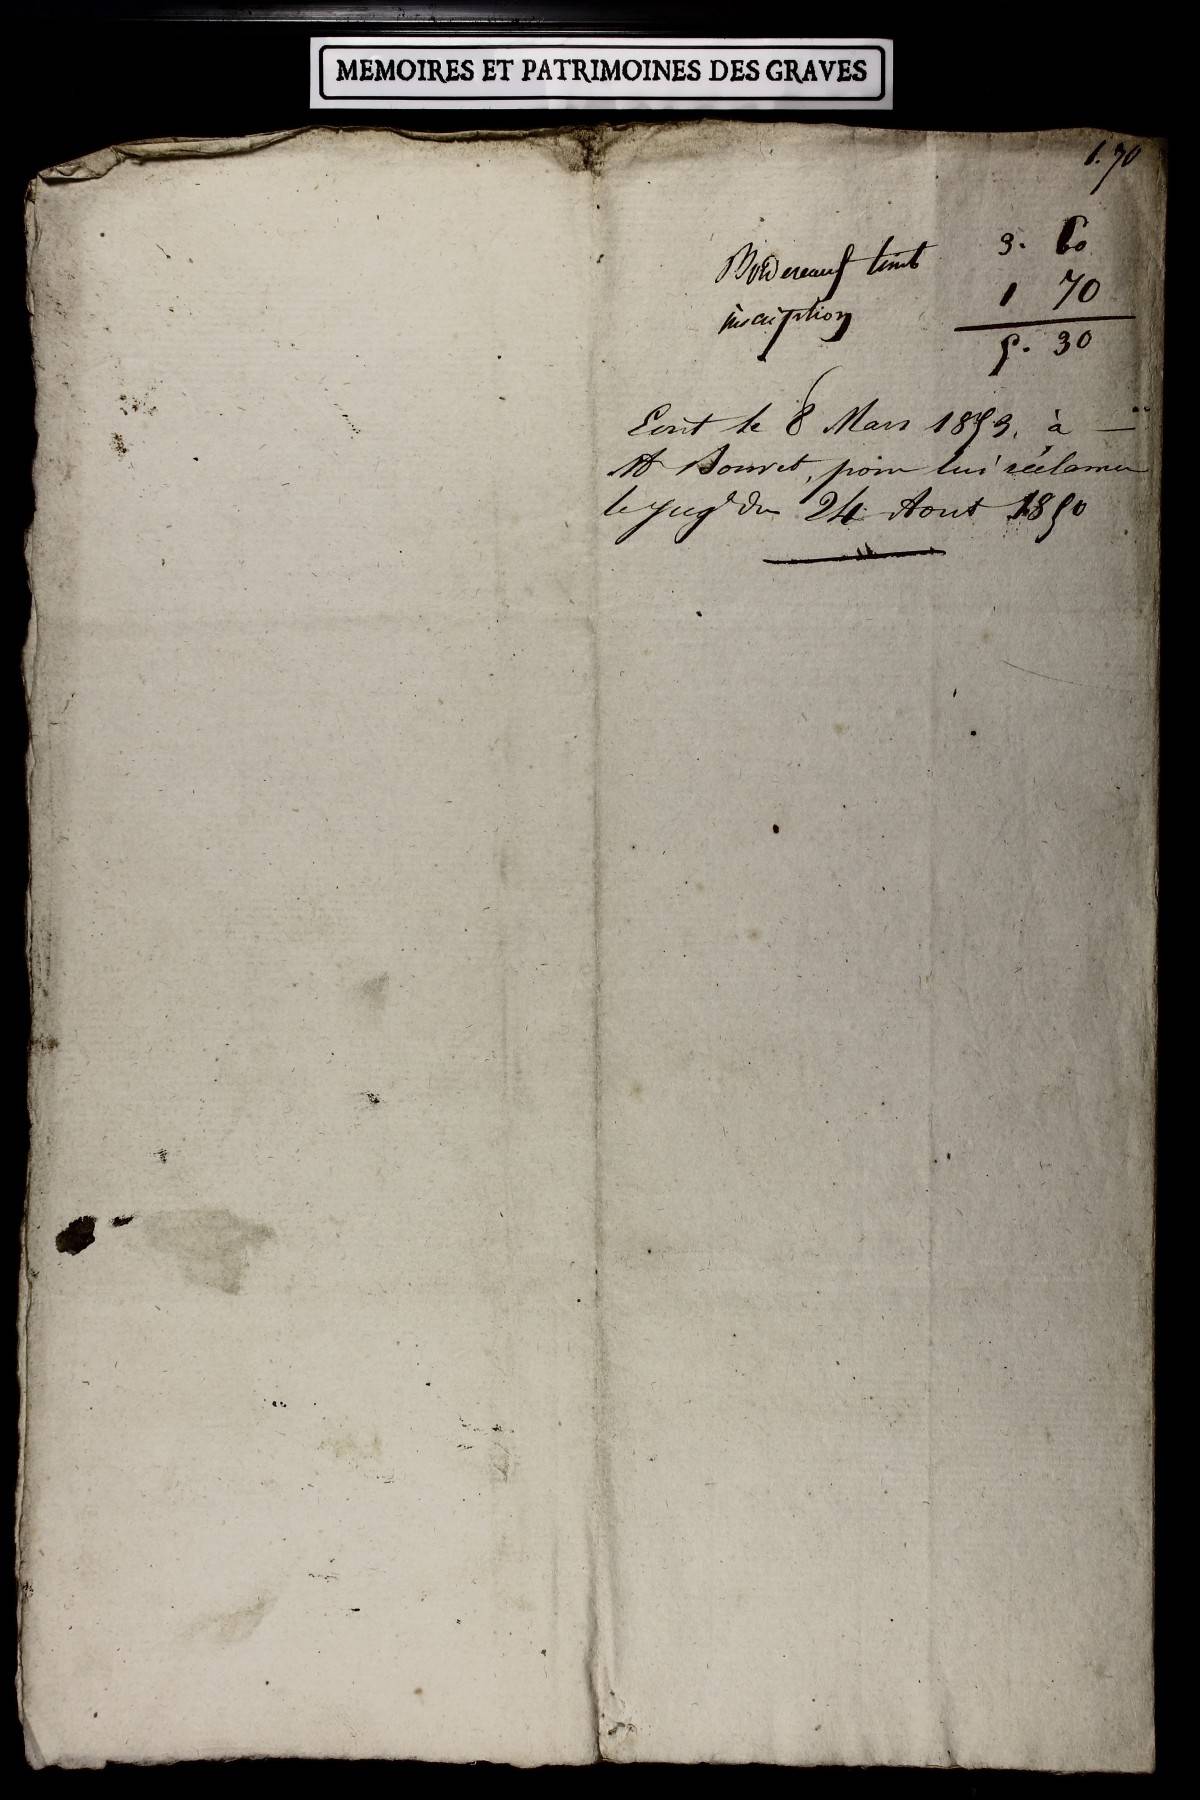 MEMOIRES ET PATRIMOINES DES GRAVES
1.70
Bordereaux timb 3. 60
inscription 1 70
5. 30
Ecrit le 8 Mars 1853, à —
Mr Bouvet, pour lui réclamer
le jugt du 24 Aout 1850